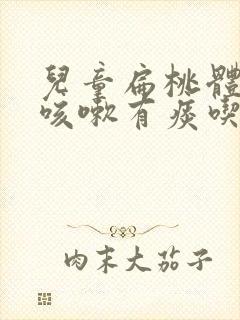 兒童扁桃體
咳嗽有痰喫
肉末大茄子